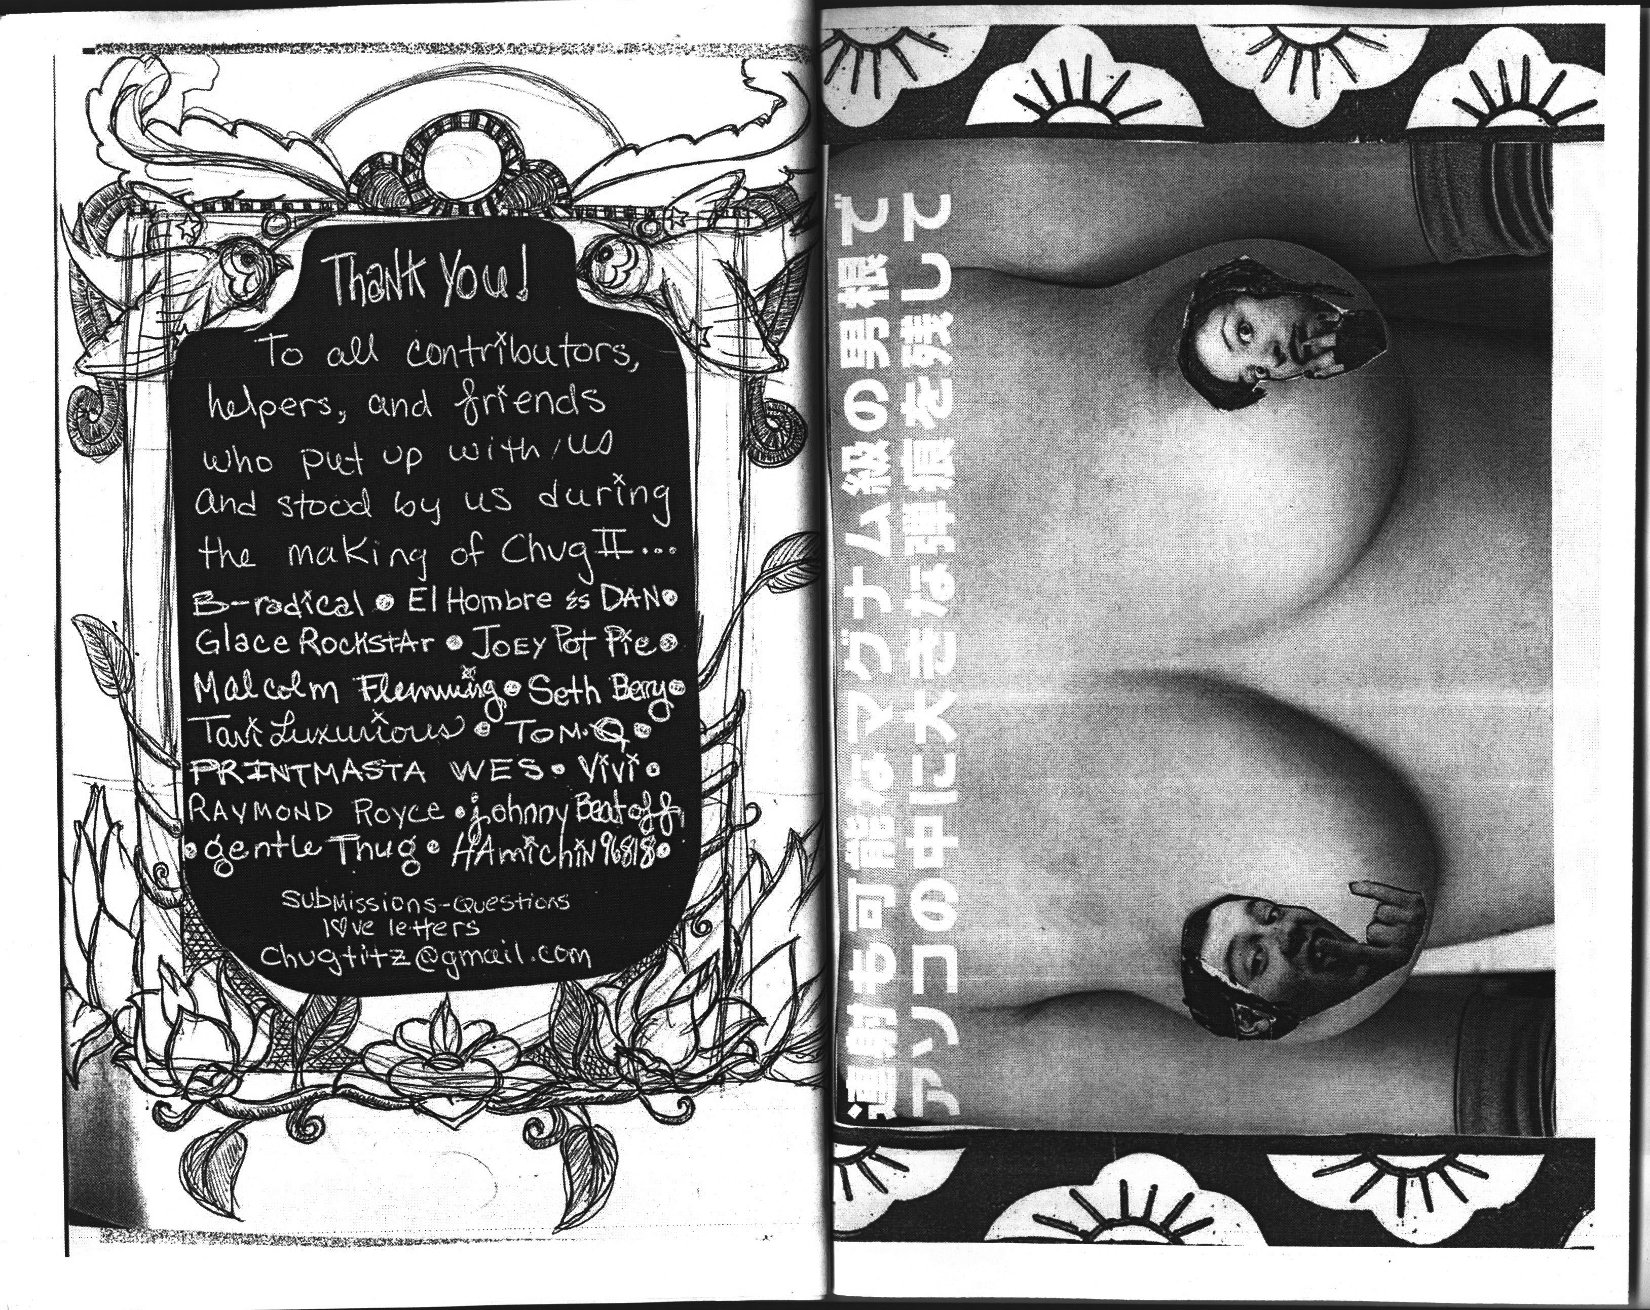 THANK YOU!
To all contributors,
helpers, and friends
who put up with us
and stood by us during
the making of Chug II...
B-radical • El Hombre es DAN •
Glace RockstAr • JOEY Pot Pie •
Malcolm Flemming • Seth Berry •
Tavi Luxurious • TOM.Q •
PRINTMASTA WES • ViVi •
RAYMOND Royce • johnny Beatoff,
• gentle Thug • HAmichiN 96818 •
SubMissions-Questions
l♡ve letters
chugtitz@gmail.com
連射も可能なマグナム級の男根で
アソコの中に大きな弾痕を残して